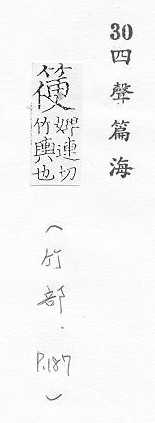 30 四聲篇海
箯
婢連切
竹輿也
(竹部．P.187)